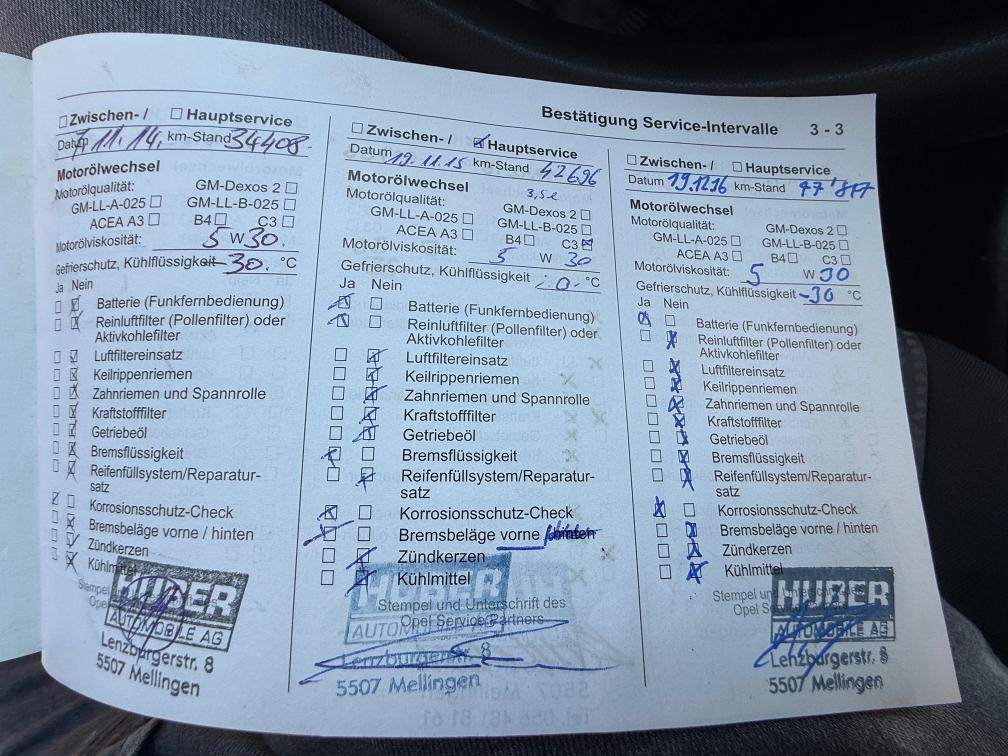 Bestätigung Service-Intervalle 3 - 3
☐ Zwischen- / ☐ Hauptservice
Datum 7.11.14. km-Stand 34408.
Motorölwechsel
Motorölqualität: GM-Dexos 2 ☐
GM-LL-A-025 ☐ GM-LL-B-025 ☐
ACEA A3 ☐ B4 ☐ C3 ☐
Motorölviskosität: 5 W 30.
Gefrierschutz, Kühlflüssigkeit -30. °C
Ja Nein
☐ ☒ Batterie (Funkfernbedienung)
☐ ☒ Reinluftfilter (Pollenfilter) oder
Aktivkohlefilter
☐ ☒ Luftfiltereinsatz
☐ ☒ Keilrippenriemen
☐ ☒ Zahnriemen und Spannrolle
☐ ☒ Kraftstofffilter
☐ ☒ Getriebeöl
☐ ☒ Bremsflüssigkeit
☐ ☒ Reifenfüllsystem/Reparatur-
satz
☒ ☐ Korrosionsschutz-Check
☐ ☒ Bremsbeläge vorne / hinten
☐ ☒ Zündkerzen
☐ ☒ Kühlmittel
HUBER
AUTOMOBILE AG
Lenzburgerstr. 8
5507 Mellingen
☐ Zwischen- / ☒ Hauptservice
Datum 19.11.15 km-Stand 42696
Motorölwechsel 3,5 l
Motorölqualität: GM-Dexos 2 ☐
GM-LL-A-025 ☐ GM-LL-B-025 ☐
ACEA A3 ☐ B4 ☐ C3 ☒
Motorölviskosität: 5 W 30
Gefrierschutz, Kühlflüssigkeit °C
Ja Nein
☒ ☐ Batterie (Funkfernbedienung)
☒ ☐ Reinluftfilter (Pollenfilter) oder
Aktivkohlefilter
☐ ☒ Luftfiltereinsatz
☐ ☒ Keilrippenriemen
☐ ☒ Zahnriemen und Spannrolle
☐ ☒ Kraftstofffilter
☐ ☒ Getriebeöl
☒ ☐ Bremsflüssigkeit
☐ ☒ Reifenfüllsystem/Reparatur-
satz
☒ ☐ Korrosionsschutz-Check
☒ ☐ Bremsbeläge vorne / hinten
☐ ☒ Zündkerzen
☐ ☒ Kühlmittel
HUBER
Stempel und Unterschrift des
Opel Service Partners
AUTOMOBILE AG
Lenzburgerstr. 8
5507 Mellingen
☐ Zwischen- / ☐ Hauptservice
Datum 19.12.16 km-Stand 77'877
Motorölwechsel
Motorölqualität: GM-Dexos 2 ☐
GM-LL-A-025 ☐ GM-LL-B-025 ☐
ACEA A3 ☐ B4 ☐ C3 ☐
Motorölviskosität: 5 W 30
Gefrierschutz, Kühlflüssigkeit -30 °C
Ja Nein
☒ ☐ Batterie (Funkfernbedienung)
☐ ☒ Reinluftfilter (Pollenfilter) oder
Aktivkohlefilter
☐ ☒ Luftfiltereinsatz
☐ ☒ Keilrippenriemen
☐ ☒ Zahnriemen und Spannrolle
☐ ☒ Kraftstofffilter
☐ ☒ Getriebeöl
☐ ☒ Bremsflüssigkeit
☐ ☒ Reifenfüllsystem/Reparatur-
satz
☒ ☐ Korrosionsschutz-Check
☐ ☒ Bremsbeläge vorne / hinten
☐ ☒ Zündkerzen
☐ ☒ Kühlmittel
HUBER
Stempel und
AUTOMOBILE AG
Lenzburgerstr. 8
5507 Mellingen